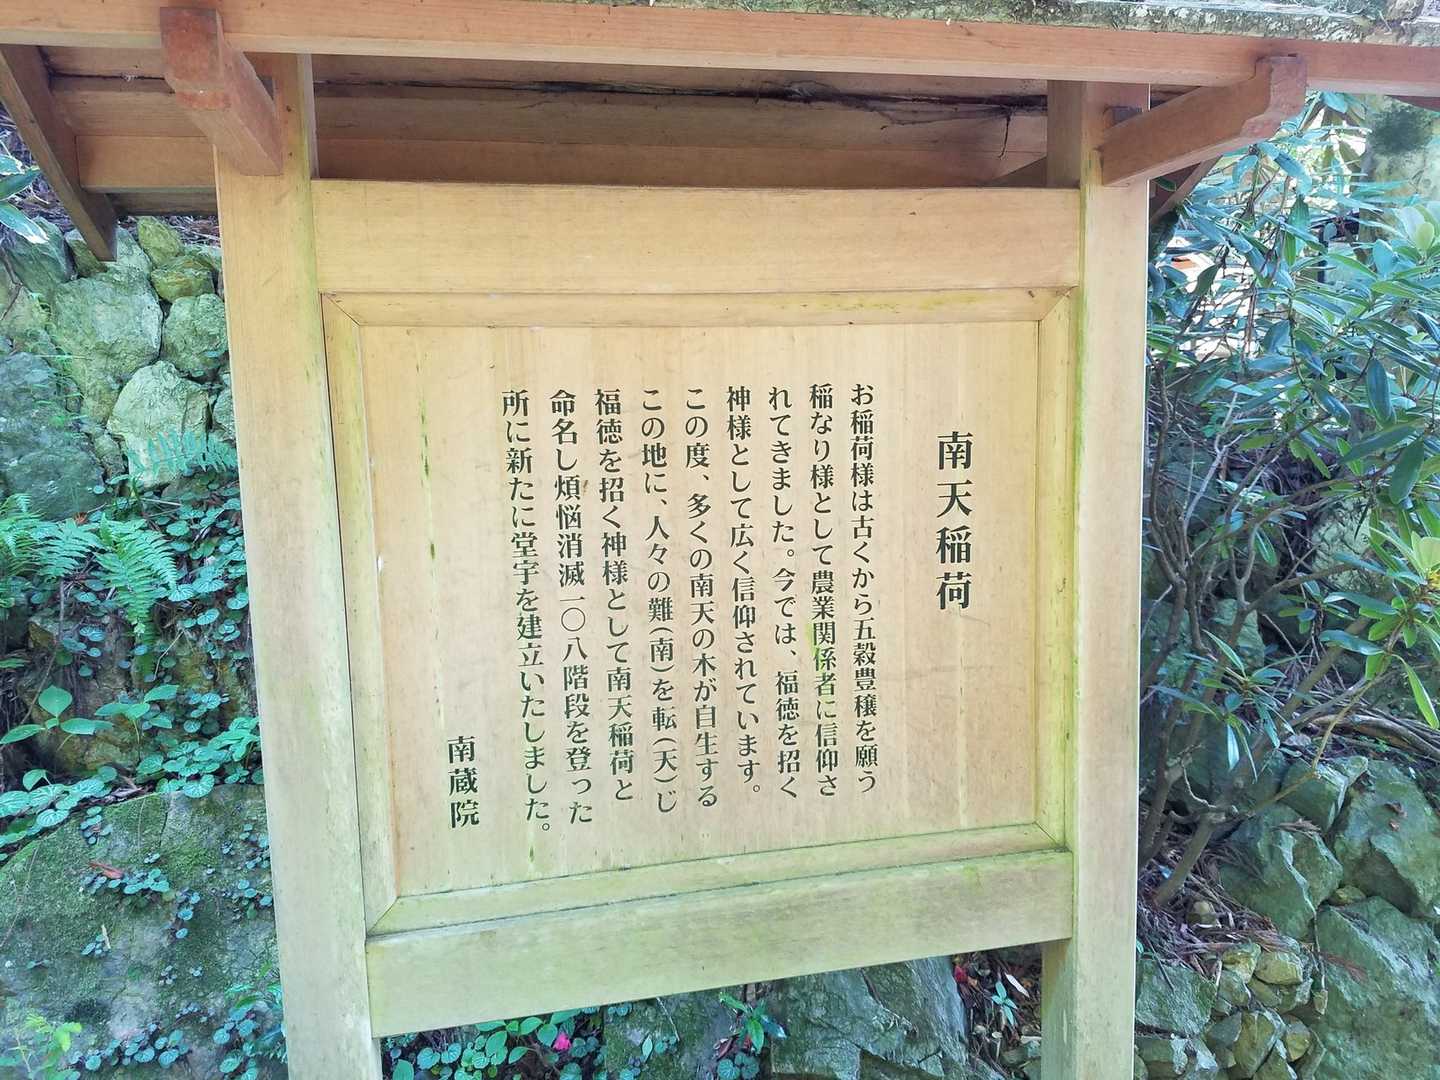 南天稲荷
お稲荷様は古くから五穀豊穣を願う
稲なり様として農業関係者に信仰さ
れてきました。今では、福徳を招く
神様として広く信仰されています。
この度、多くの南天の木が自生する
この地に、人々の難(南)を転(天)じ
福徳を招く神様として南天稲荷と
命名し煩悩消滅一〇八階段を登った
所に新たに堂宇を建立いたしました。
南蔵院